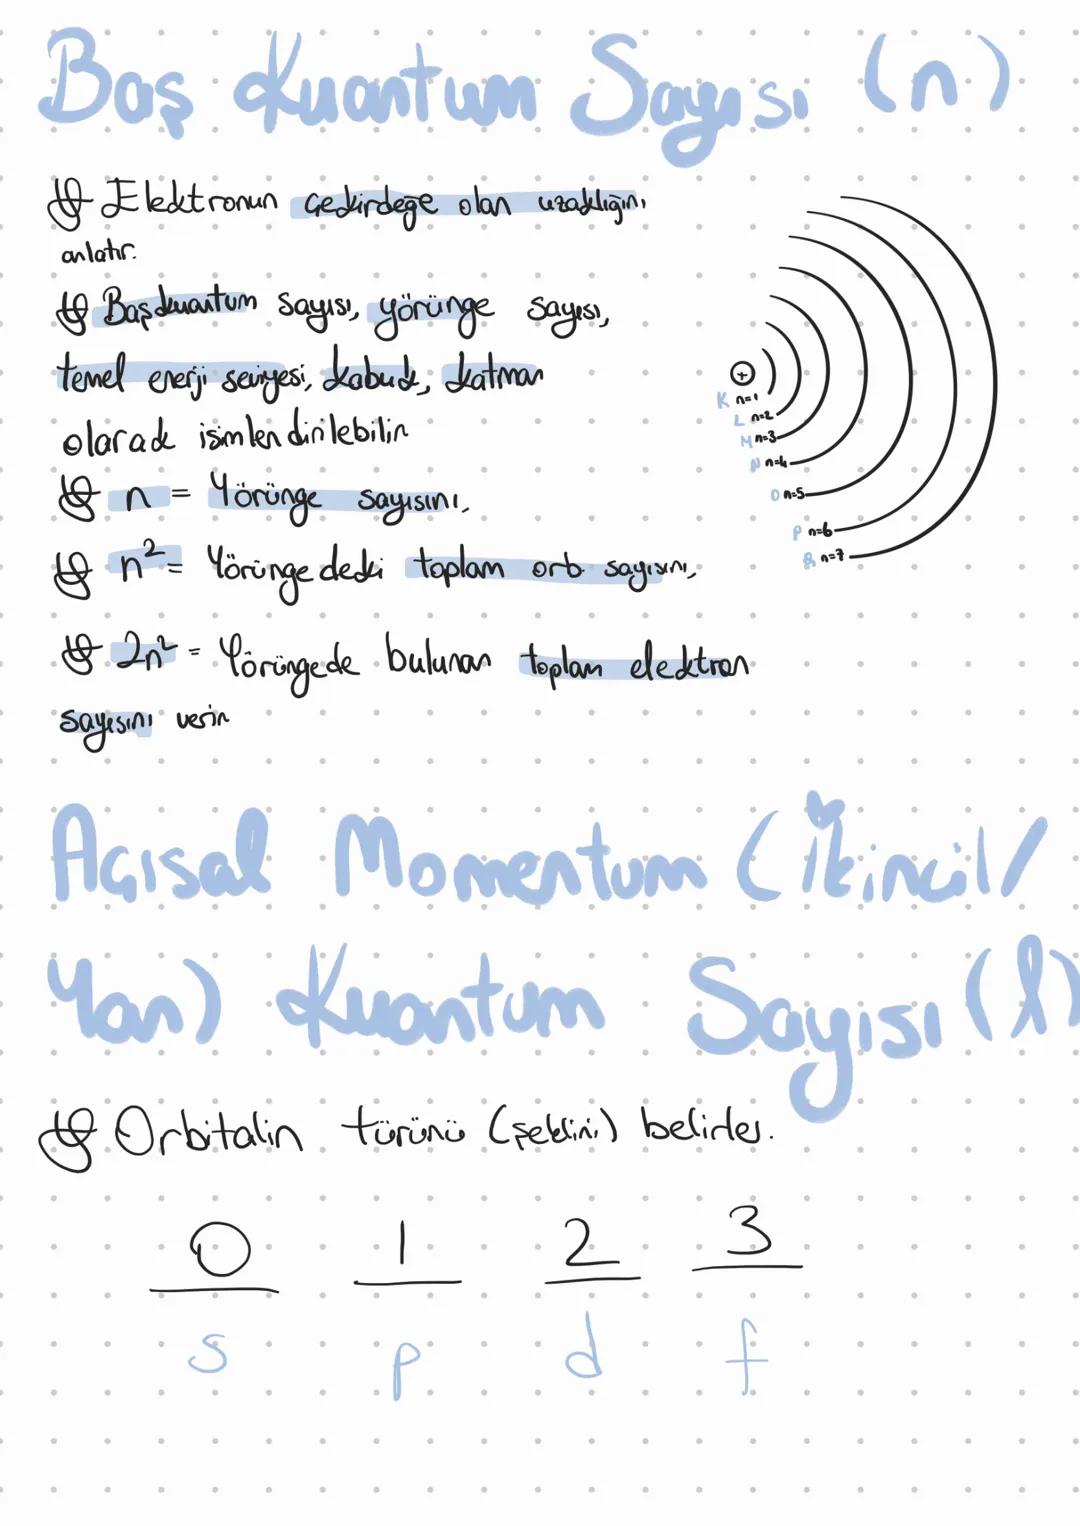 Baş Kuantum Sayısı (n)
Elektronun çekirdeğe olan uzaklığını
anlatır.
Başkuantum sayısı, yörünge sayısı,
temel enerji seviyesi, kabuk, katman
olarak isimlendirilebilir
n = Yörünge sayısını,
n² = Yörüngedeki toplam orb sayısını,
2n² = Yörüngede bulunan toplam elektron
sayısını verir
+
K n=1
L n=2
M n=3
N n=4
O n=5
P n=6
Q n=7
Açısal Momentum (İkincil/
Yan) Kuantum Sayısı (l)
Orbitalin türünü (şeklini) belirler.
0 1 2 3
s p d f